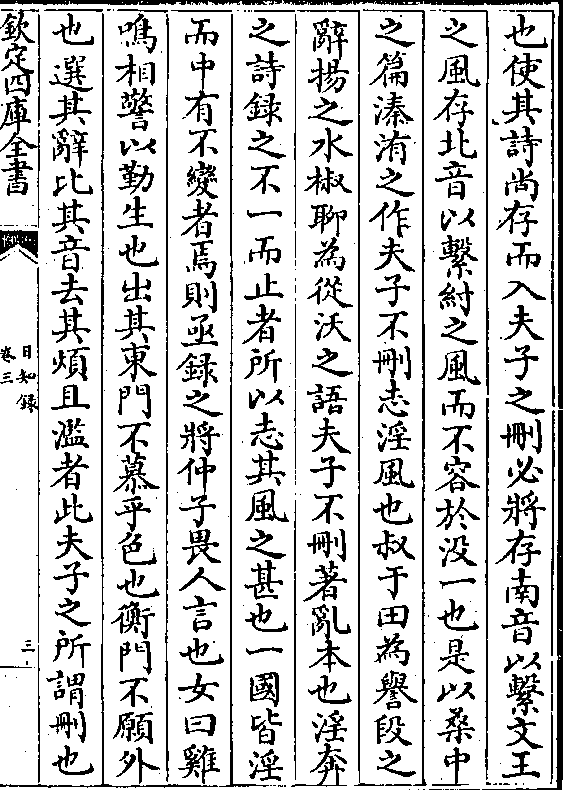 也使其詩尚存而入夫子之刪必將存南音以繫文王
之風存北音以繫紂之風而不容於没一也是以桑中
之篇溱洧之作夫子不刪志淫風也叔于田為譽段之
辭揚之水椒聊為從沃之語夫子不刪著亂本也淫奔
之詩録之不一而止者所以志其風之甚也一國皆淫
而中有不變者焉則亟録之將仲子畏人言也女曰雞
鳴相警以勤生也出其東門不慕乎色也衡門不願外
也選其辭比其音去其煩且濫者此夫子之所謂刪也
欽定四庫全書
日知録
卷三
三